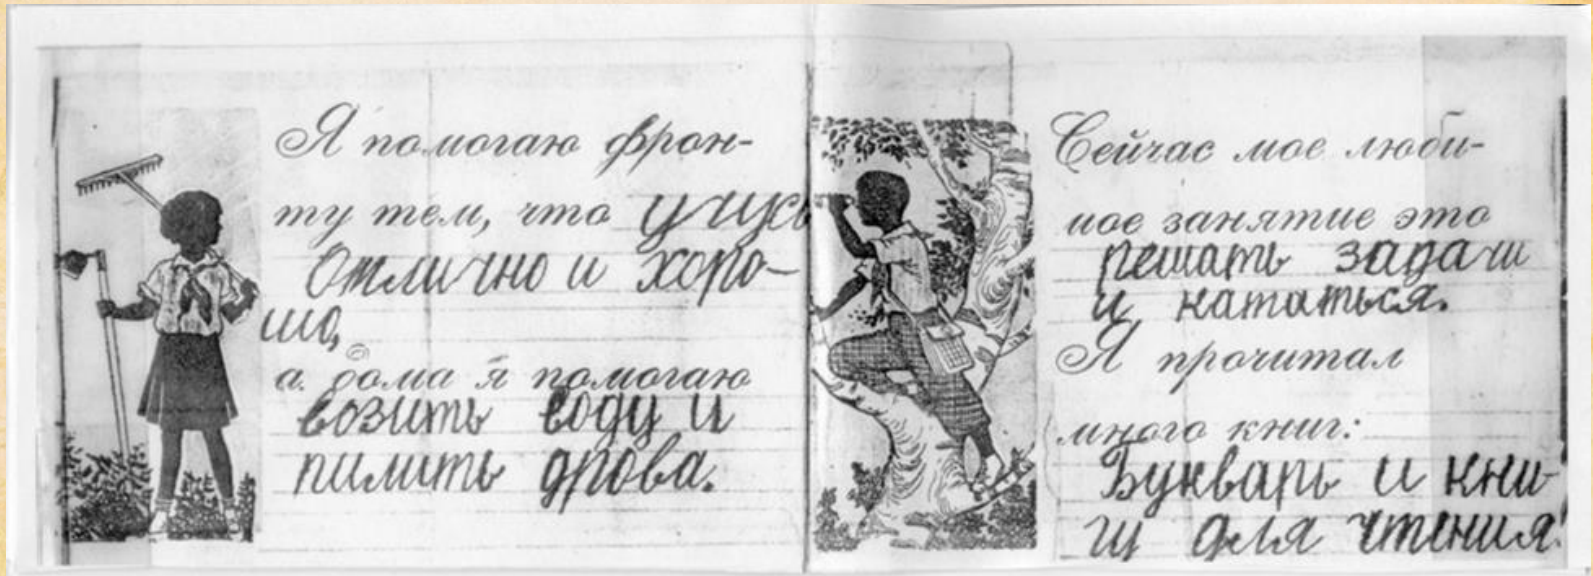 Я помогаю фрон-
ту тем, что учусь
Отлично и хоро-
шо,
а дома я помогаю
возить воду и
пилить дрова.
Сейчас мое люби-
мое занятие это
решать задачи
и кататься.
Я прочитал
много книг:
Букварь и кни-
ги для чтения.